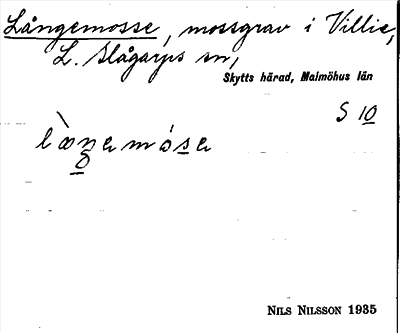 Långemosse, mossgrav i Villie,
L. Slågarps sn,
Skytts härad, Malmöhus län
S 10
NILS NILSSON 1935